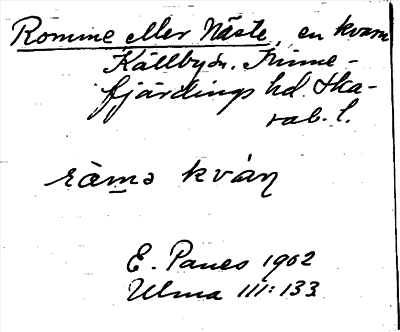 Romme eller Näste, en kvarn
Källbysn. Kinne-
fjärdings hd. Ska-
rab. l.
ràmə kván
E. Panes 1902
Ulma 111:133